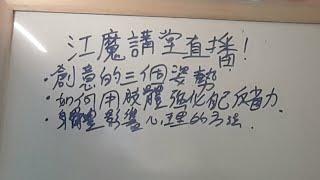 江魔講堂直播!
·創意的三個姿勢
·如何用肢體強化自反省力
·身體影響心理的方法